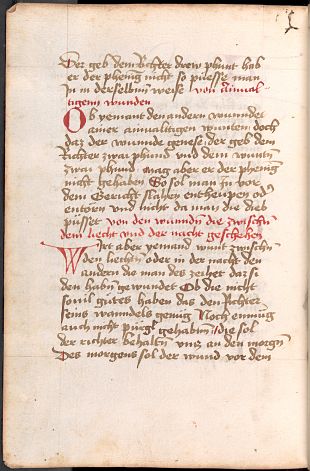 Der geb dem Richter drew phunt hab
er der phenig nicht so puesse man
In in derselbm weise von Amual-
tigenn wunden
Ob yemant den andern wunndet
ainer anualtigen wunten doch
daz der wunde genese der geb dem
Richter zwai phund vnd dem wuntn
zwai phund mag aber er der phenig
nicht gehaben So sol man In vor
dem Gericht slahen entheupen od
entorn vnd nicht da man die dieb
pusset von den wunndn die zwischn
dem liecht vnd der nacht geschehen
Wirt aber yemand wunt zwischn
den liechtn oder in der nacht den
andern die man des zeihet daz si
den habn gewundet Ob die nicht
souil gutes haben das den Richter
seins wanndels genug Noch emmug
auch nicht purgl gehabnn die sol
der richter behaltn vntz an den morgn
Des morgens sol der wund vor dem